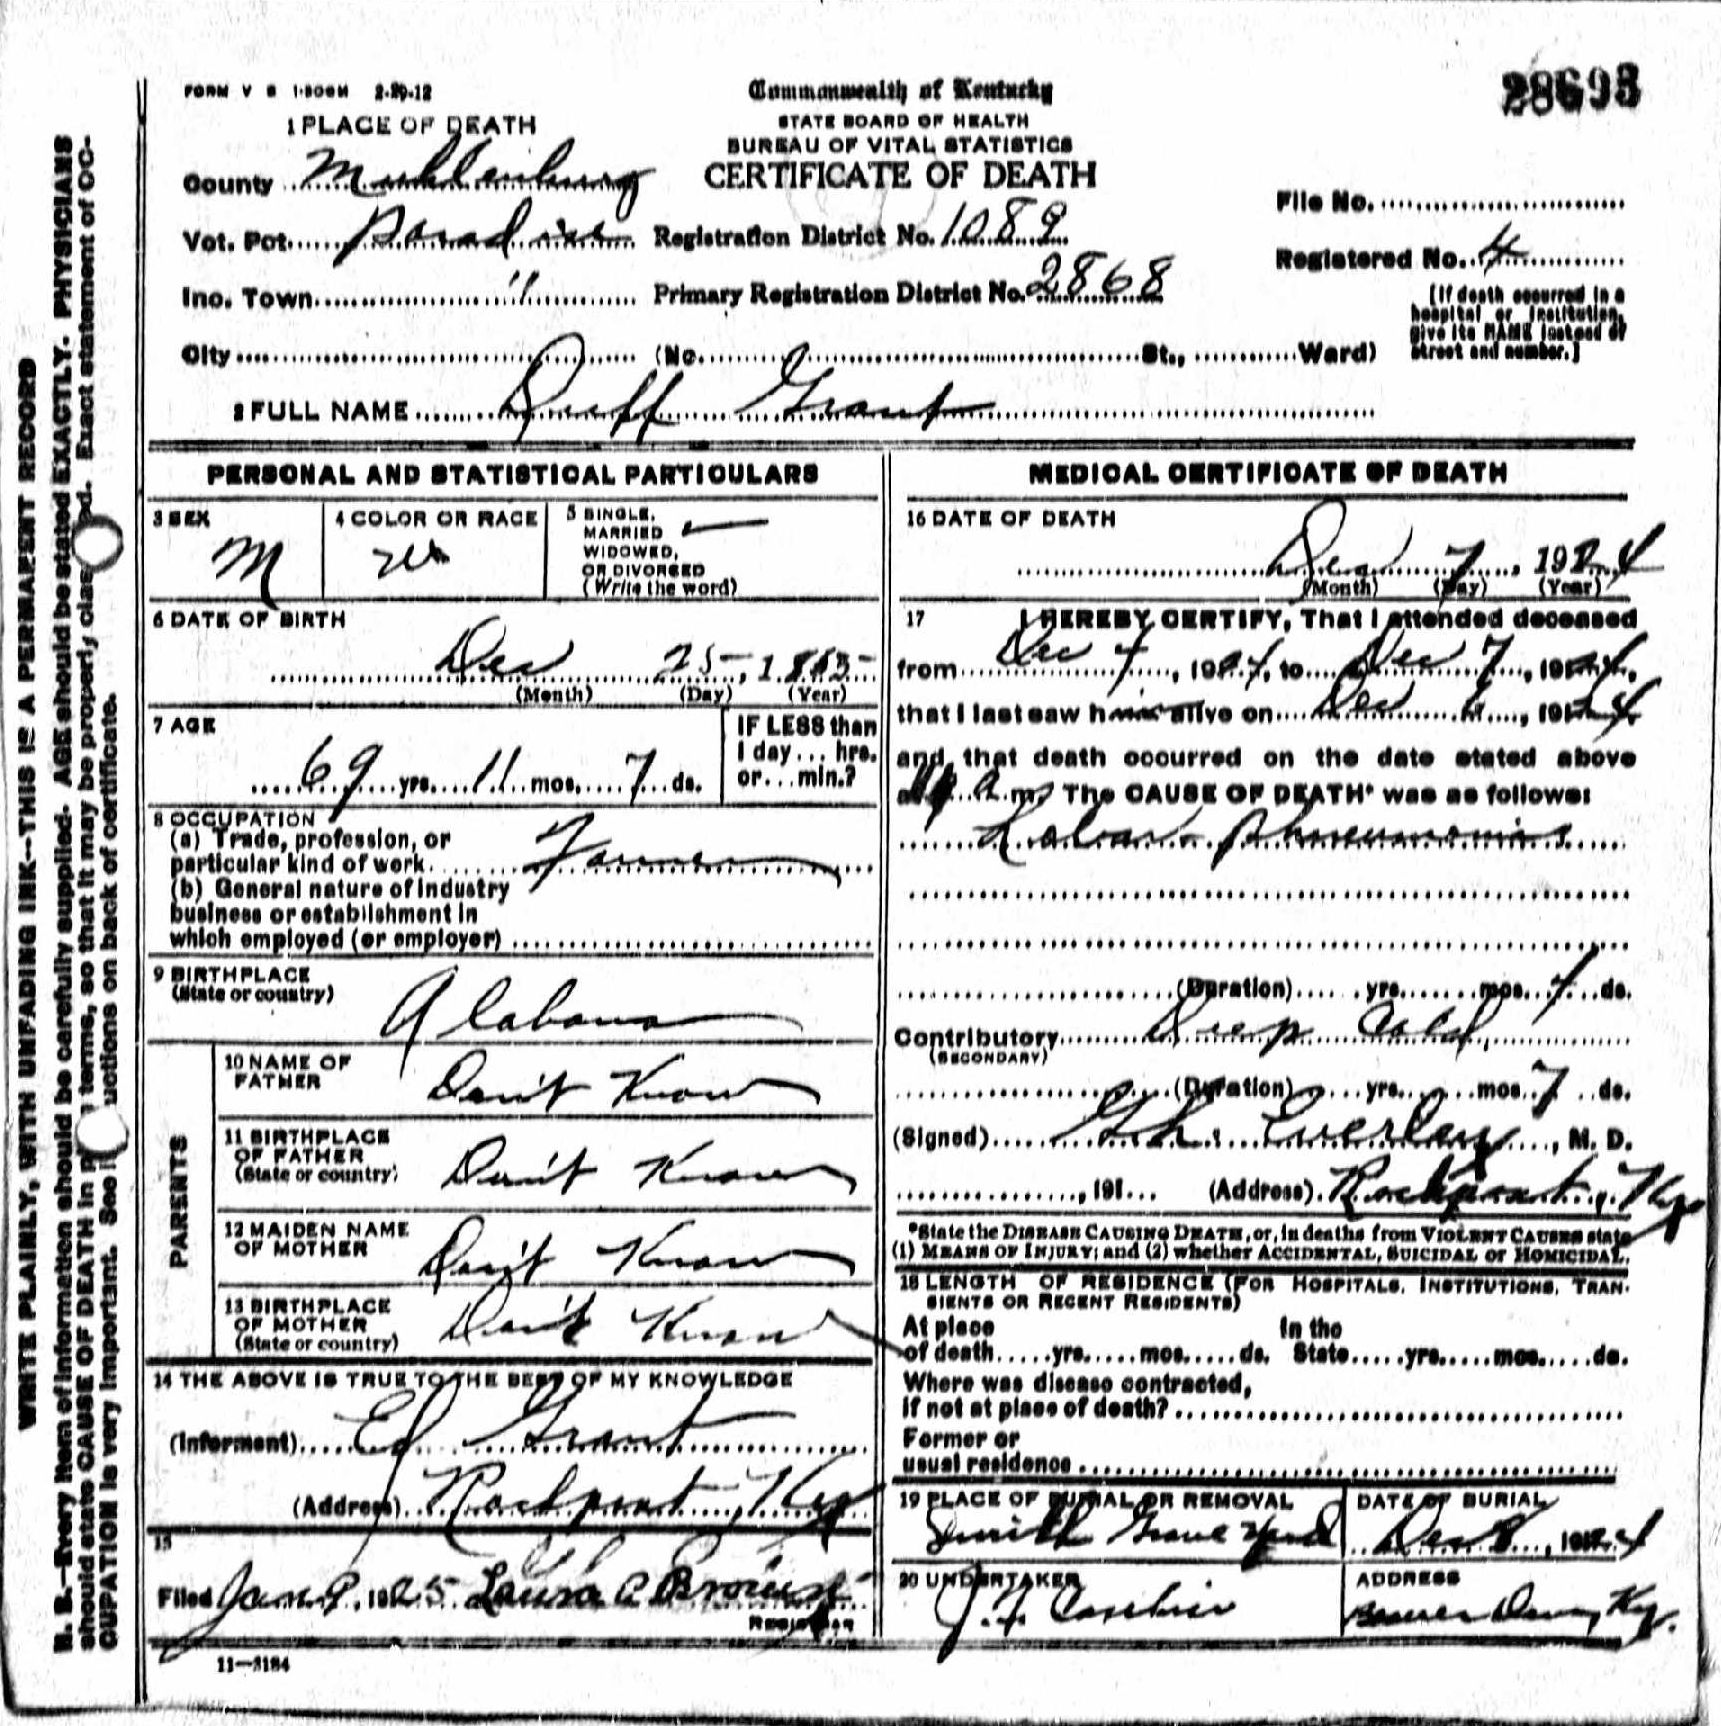 FORM V S 1-500M 2-29-12
28693
Commonwealth of Kentucky
STATE BOARD OF HEALTH
BUREAU OF VITAL STATISTICS
CERTIFICATE OF DEATH
1 PLACE OF DEATH
County Muhlenburg
Vot. Pct. Paradise Registration District No. 1089
Inc. Town " Primary Registration District No. 2868
City (No. St., Ward)
File No.
Registered No. 4
[If death occurred in a
hospital or institution,
give its NAME instead of
street and number.]
2 FULL NAME Duff Grant
PERSONAL AND STATISTICAL PARTICULARS
3 SEX
M
4 COLOR OR RACE
W
5 SINGLE,
MARRIED
WIDOWED,
OR DIVORCED
(Write the word)
6 DATE OF BIRTH
Dec 25, 18
(Month) (Day) (Year)
7 AGE
69 yrs. 11 mos. 7 ds.
IF LESS than
1 day... hrs.
or...min.?
8 OCCUPATION
(a) Trade, profession, or
particular kind of work Farmer
(b) General nature of industry
business or establishment in
which employed (or employer)
9 BIRTHPLACE
(State or country)
Alabama
PARENTS
10 NAME OF
FATHER
Don't Know
11 BIRTHPLACE
OF FATHER
(State or country)
Don't Know
12 MAIDEN NAME
OF MOTHER
Don't Know
13 BIRTHPLACE
OF MOTHER
(State or country)
Don't Know
14 THE ABOVE IS TRUE TO THE BEST OF MY KNOWLEDGE
(Informant) Ed Grant
(Address) Rockport, Ky
15
Filed Jan 9, 1925 Laura C Brown
Registrar
11-3184
MEDICAL CERTIFICATE OF DEATH
16 DATE OF DEATH
Dec 7, 1924
(Month) (Day) (Year)
17 I HEREBY CERTIFY, That I attended deceased
from Dec 4, 1924, to Dec 7, 1924,
that I last saw him alive on Dec 6, 1924
and that death occurred on the date stated above
at a m. The CAUSE OF DEATH* was as follows:
Lobar Phneumonia
(Duration) yrs. mos. 7 ds.
Contributory Deep Cold
(SECONDARY)
(Duration) yrs. mos. 7 ds.
(Signed) Everley, M. D.
, 191... (Address) Rockport, Ky
*State the DISEASE CAUSING DEATH, or, in deaths from VIOLENT CAUSES state
(1) MEANS OF INJURY; and (2) whether ACCIDENTAL, SUICIDAL or HOMICIDAL.
18 LENGTH OF RESIDENCE (FOR HOSPITALS, INSTITUTIONS, TRAN-
SIENTS OR RECENT RESIDENTS)
At place In the
of death yrs. mos. ds. State yrs. mos. ds.
Where was disease contracted,
if not at place of death?
Former or
usual residence
19 PLACE OF BURIAL OR REMOVAL
Smith Grave Yard
DATE OF BURIAL
Dec 8, 1924
20 UNDERTAKER
J. F. Casebier
ADDRESS
Beaver Dam, Ky.
WRITE PLAINLY, WITH UNFADING INK--THIS IS A PERMANENT RECORD
N. B.--Every item of information should be carefully supplied. AGE should be stated EXACTLY. PHYSICIANS
should state CAUSE OF DEATH in P terms, so that it may be properly class ed. Exact statement of OC-
CUPATION is very important. See i uctions on back of certificate.